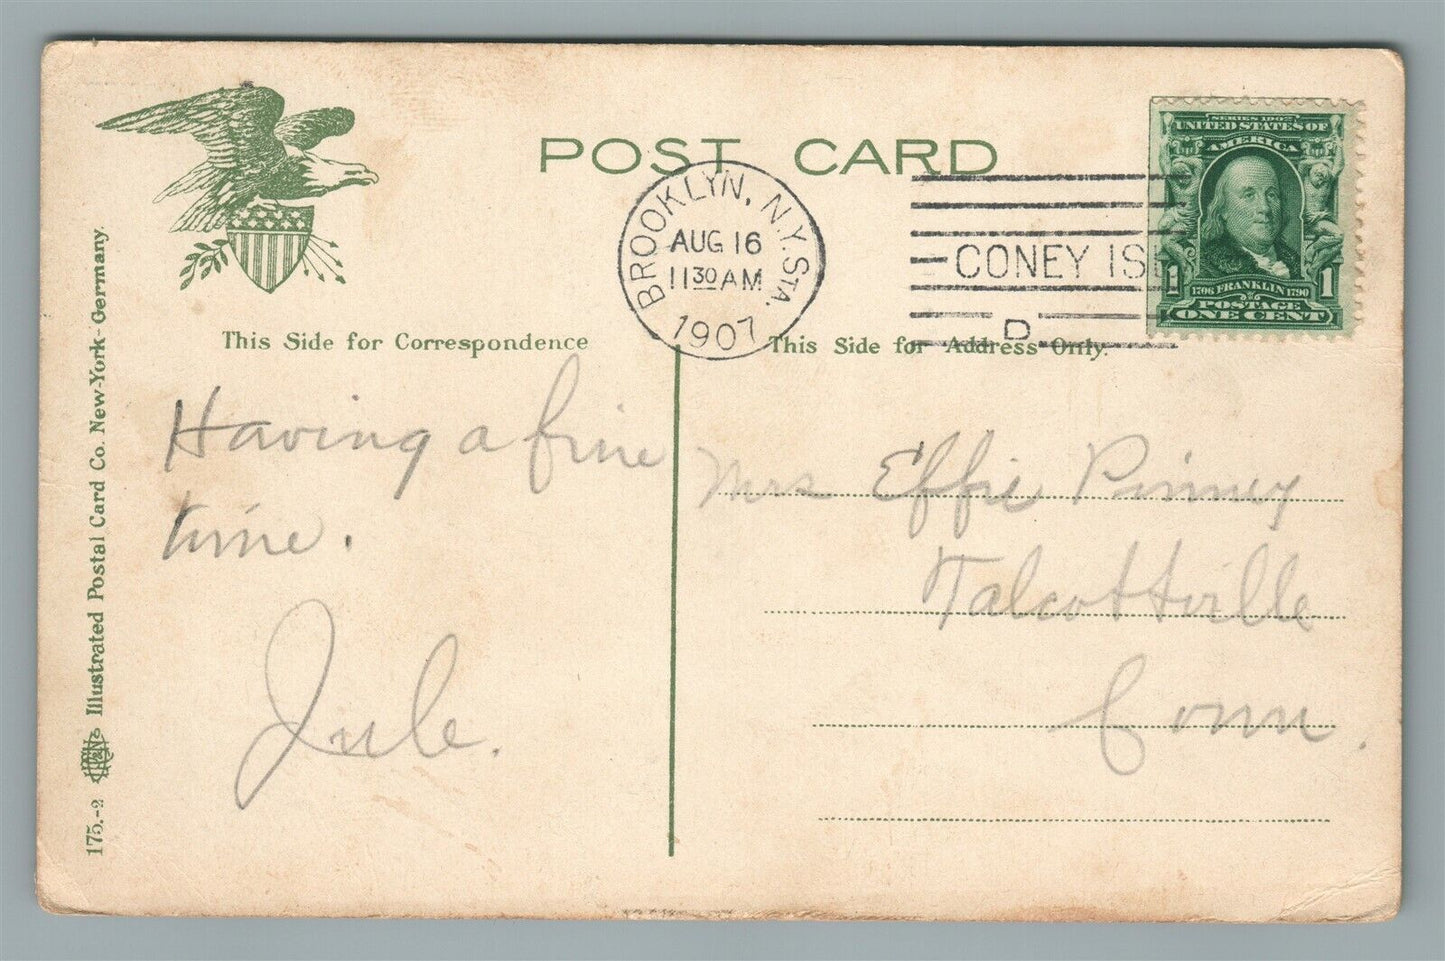 POST CARD
SERIES 1902
UNITED STATES OF
AMERICA
1706 FRANKLIN 1790
1 1
POSTAGE
ONE CENT
BROOKLYN, N.Y. STA.
AUG 16
11 30 AM
1907
CONEY IS
D
This Side for Correspondence
This Side for Address Only.
Having a fine
time.
Jule.
Mrs Effie Pinney
Talcottville
Conn.
175.-2 Illustrated Postal Card Co. New-York-Germany.